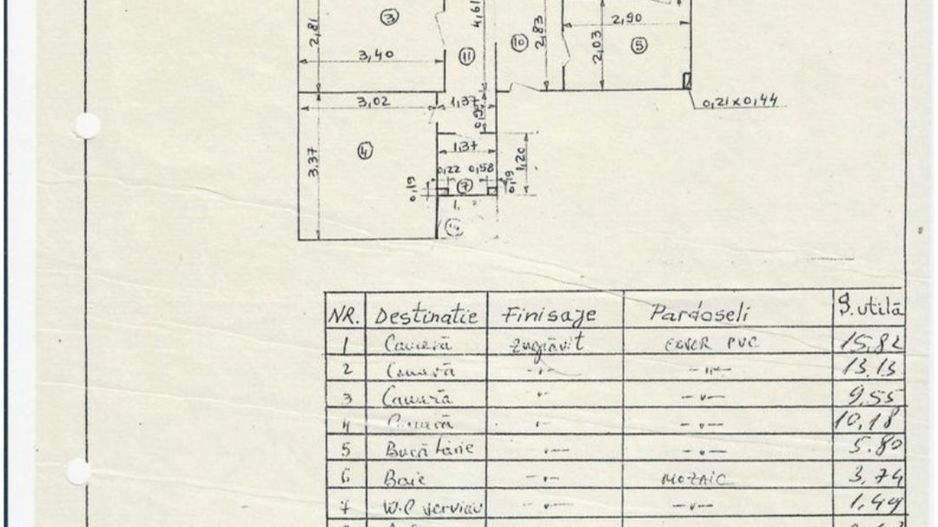 2,81
3
3,40
4,61
11
10
2,83
2,90
2,03
5
0,21x0,44
3,02
1,37
3,37
4
1,37
1,20
0,22 0,58
0,19
7
0,19
NR. Destinatie Finisaje Pardoseli S.utilă
1 Cameră zugrăvit COVOR PVC 15.82
2 Cameră -"- -"- 13.13
3 Cameră -"- -"- 9,55
4 Cameră -"- -"- 10,18
5 Bucătărie -"- -"- 5.80
6 Baie -"- MOZAIC 3,74
7 W.C serviciu -"- -"- 1,49